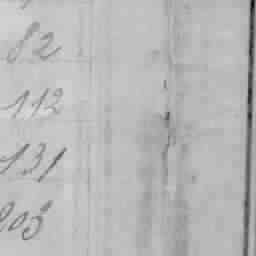 82
112
131
203